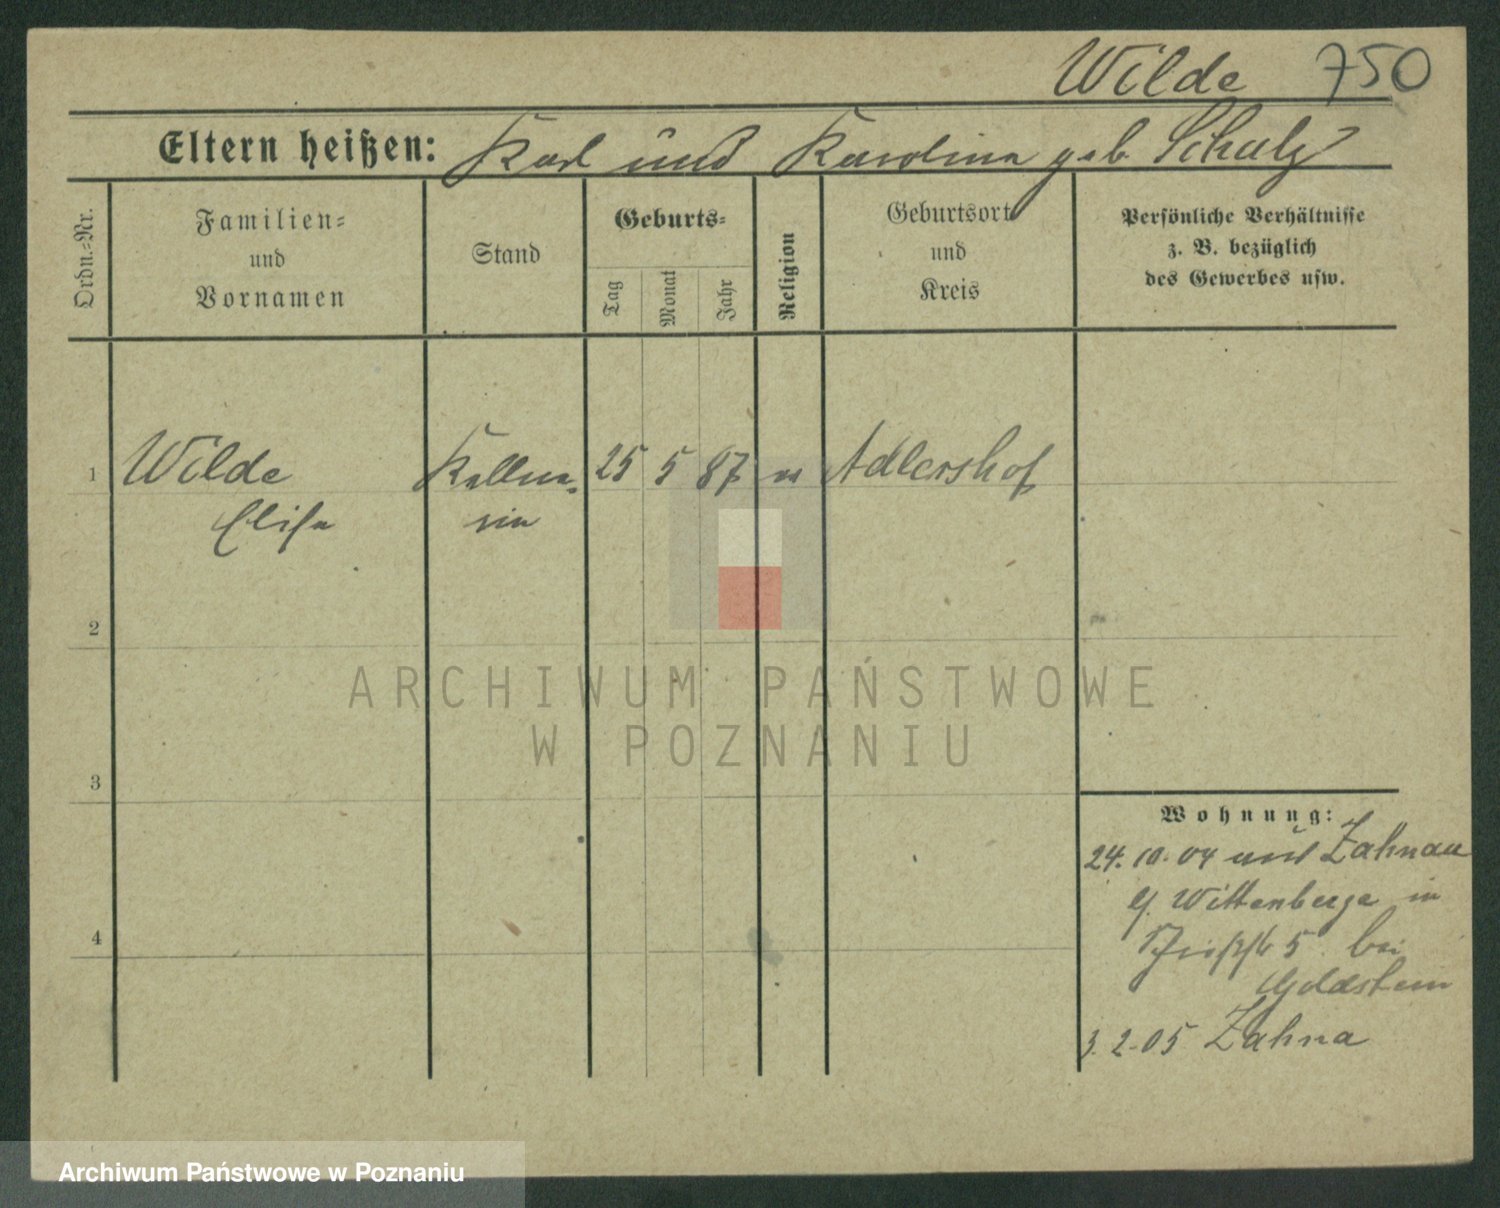 Wilde 750
Eltern heißen: Karl und Karoline geb. Schulz
Ordn.-Nr.
Familien-
und
Vornamen
Stand
Geburts-
Tag
Monat
Jahr
Religion
Geburtsort
und
Kreis
Persönliche Verhältnisse
z. B. bezüglich
des Gewerbes usw.
1 Wilde Kellne- 25 5 87 Adlershof
Elise rin
2
3
4
Wohnung:
24. 10. 04 Zahnau
Wittenberge in
5 bei
Goldstein
3. 2. 05 Zahna
ARCHIWUM PAŃSTWOWE
W POZNANIU
Archiwum Państwowe w Poznaniu